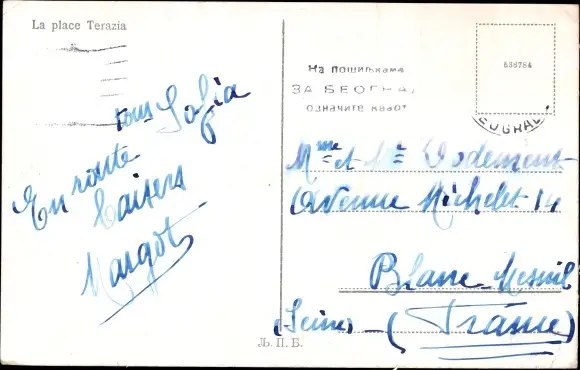 La place Terazia
636784
На пошиљкама
ЗА БЕОГРАД
означите кварт
EOGRAD
En route
pour Sofia
Baisers
Margot
Mme et Mr Dodement
Avenue Michelet 14
Blanc-Mesnil
(Seine) – (France)
Љ. П. Б.